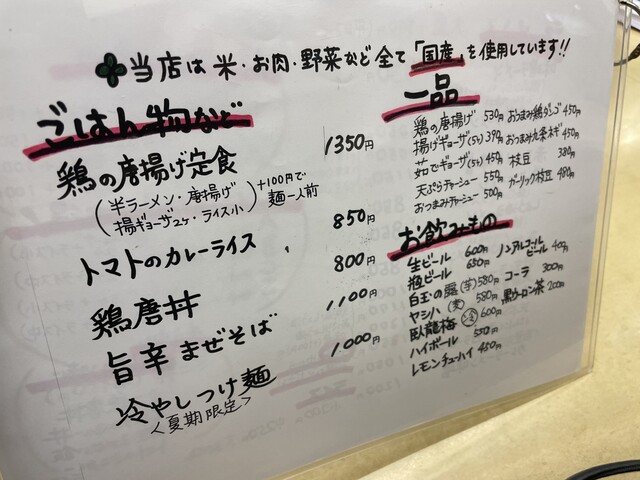 当店は米・お肉・野菜など全て「国産」を使用しています!!
ごはん物など
鶏の唐揚げ定食 1350円
(半ラーメン・唐揚げ
揚ギョーザ2ヶ・ライス小)
+100円で
麺一人前
トマトのカレーライス 850円
鶏唐丼 800円
旨辛まぜそば 1,100円
冷やしつけ麺 1,000円
<夏期限定>
一品
鶏の唐揚げ 530円
揚げギョーザ(5ヶ) 390円
茹でギョーザ(5ヶ) 450円
天ぷらチャーシュー 550円
おつまみチャーシュー 500円
おつまみ鶏ダンゴ 450円
おつまみ九条ネギ 450円
枝豆 380円
ガーリック枝豆 480円
お飲みもの
生ビール 600円
瓶ビール 650円
白玉の露(芋) 580円
ヤシハ(麦) 580円
臥龍梅(冷) 600円
ハイボール 550円
レモンチューハイ 450円
ノンアルコール
ビール 400円
コーラ 300円
黒ウーロン茶 200円